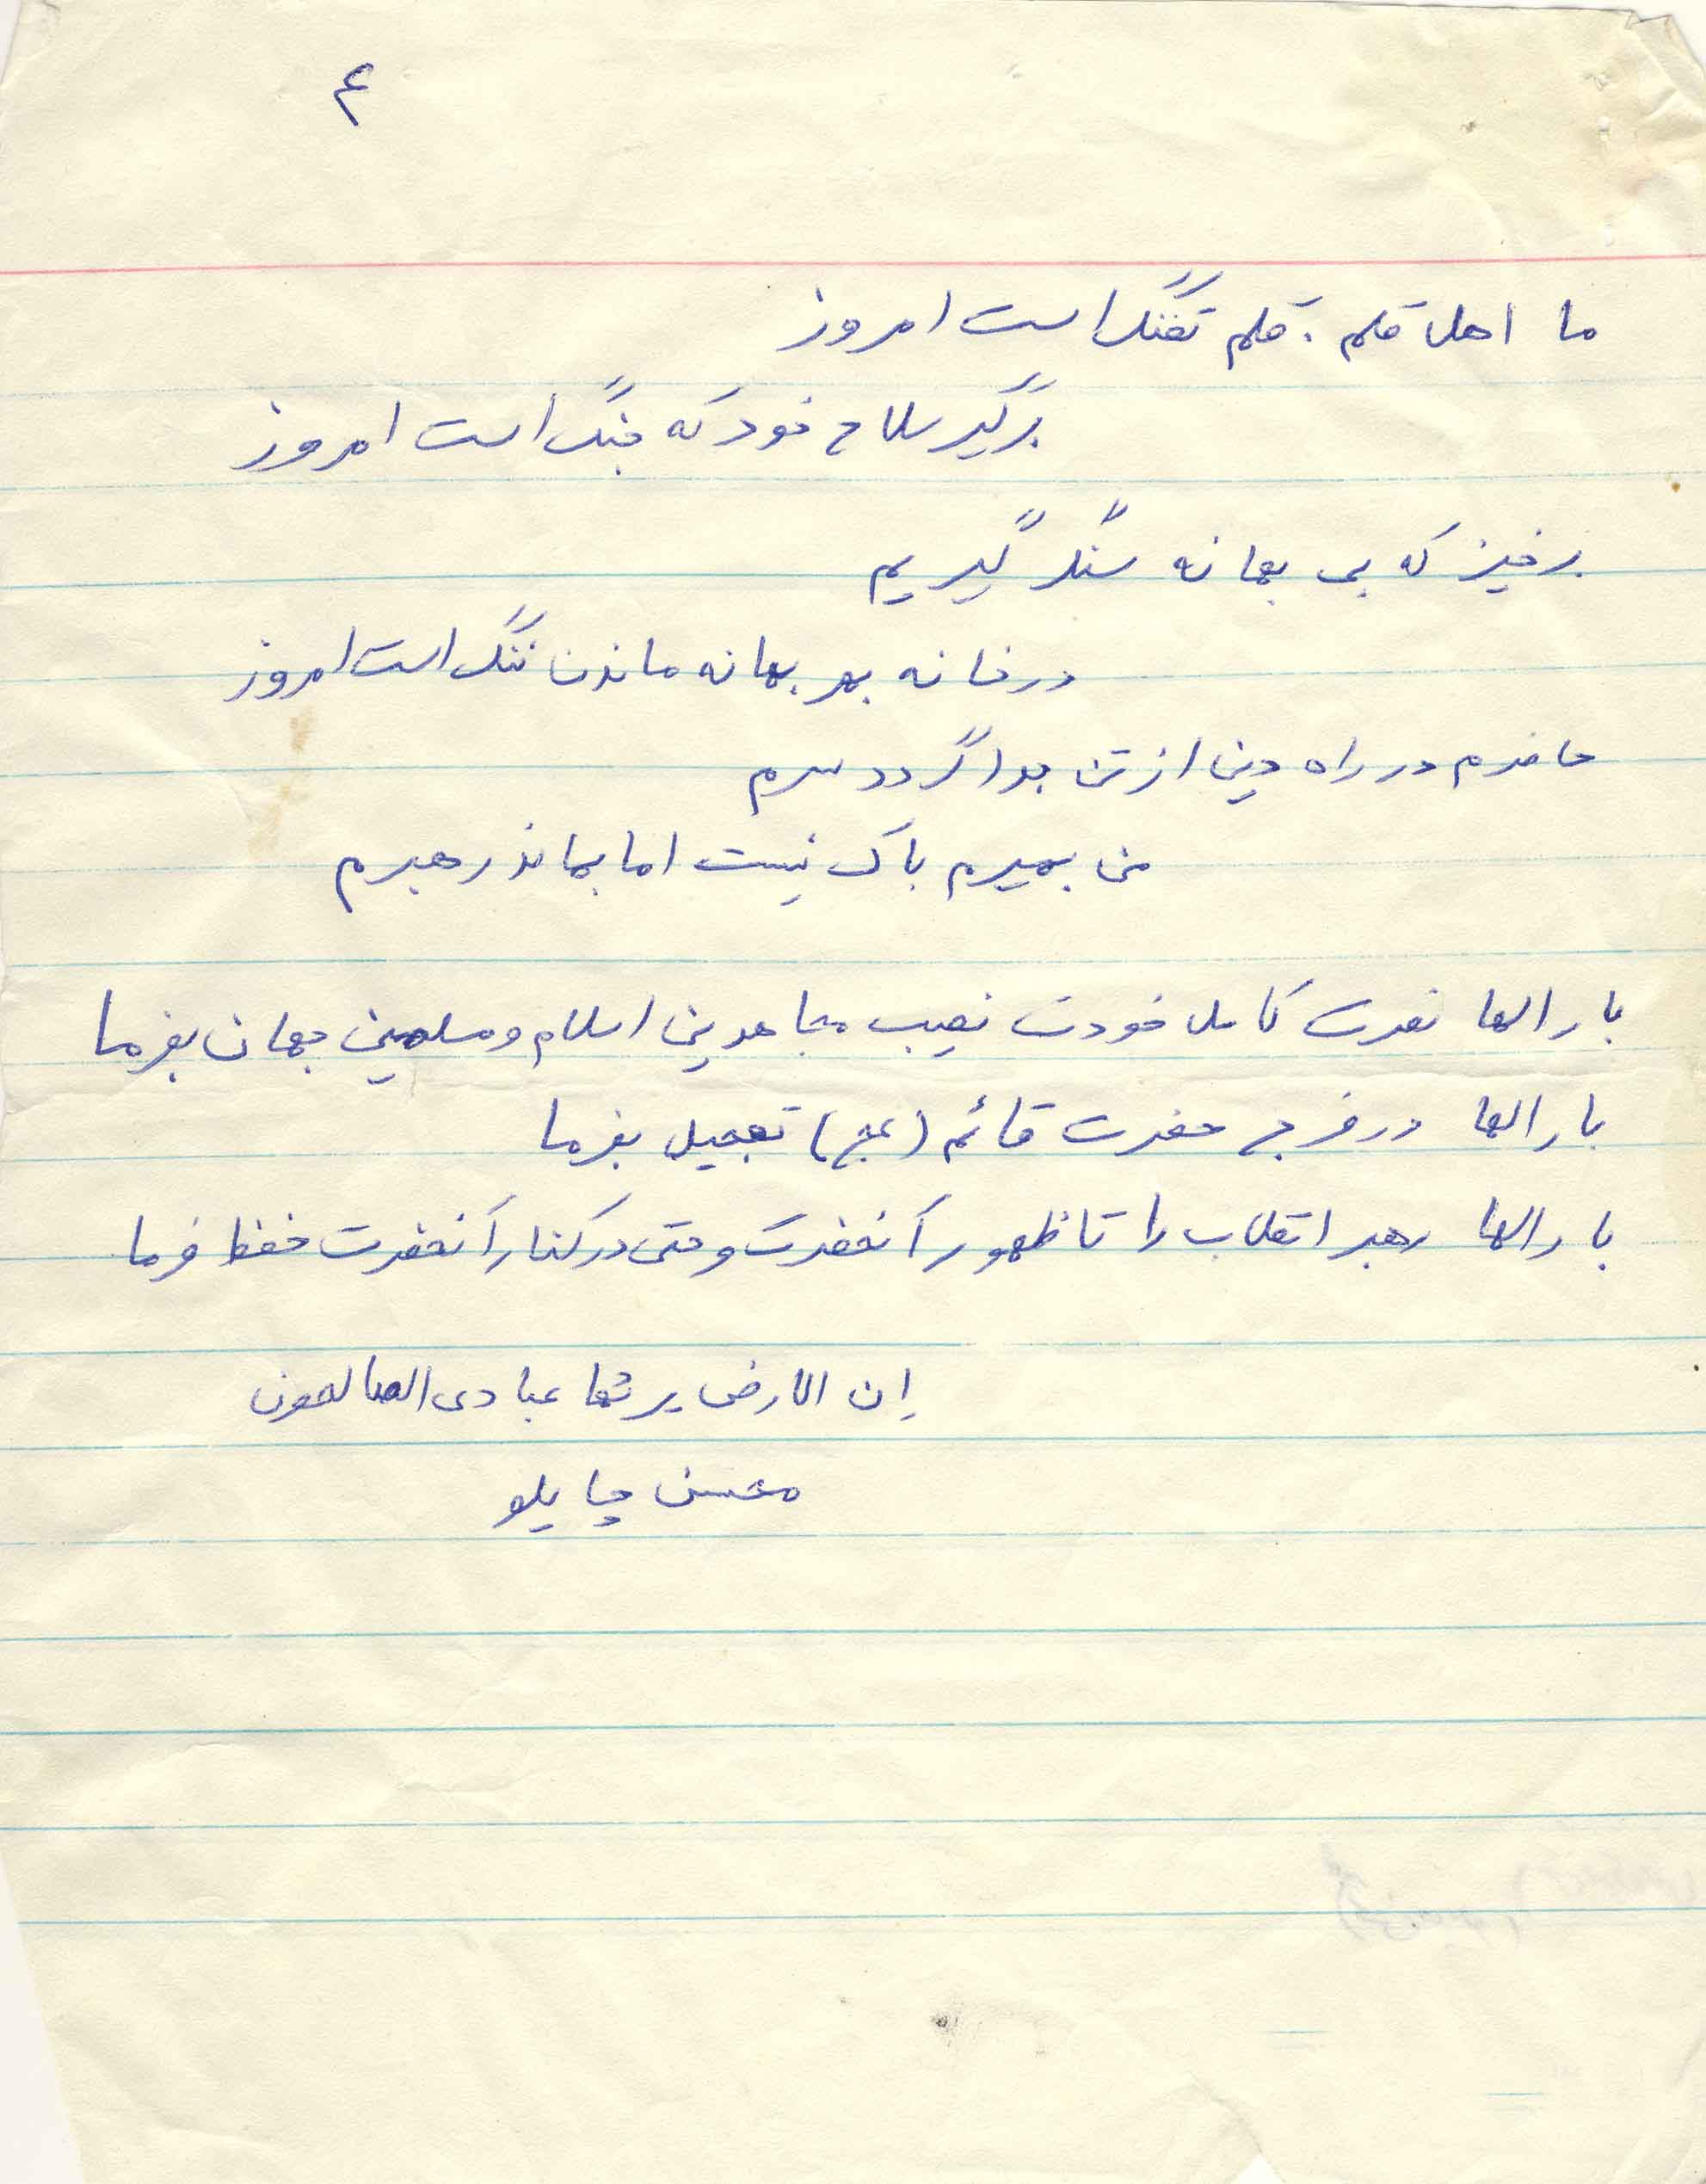 ۴
ما اهل قلم . قلم تفنگ است امروز
برگیر سلاح خود که جنگ است امروز
برخیز که بی بهانه سنگر گیریم
در خانه بهر بهانه ماندن ننگ است امروز
حاضرم در راه دین از تن جدا گردد سرم
من بمیرم باک نیست اما بماند رهبرم
بار الها نصرت کامل خودت نصیب مجاهدین اسلام و مسلمین جهان بفرما
بار الها در فرج حضرت قائم (عج) تعجیل بفرما
بار الها رهبر انقلاب را تا ظهور آنحضرت و حتی در کنار آنحضرت حفظ فرما
إن الارض یرثها عبادی الصالحون
محسن چایلو